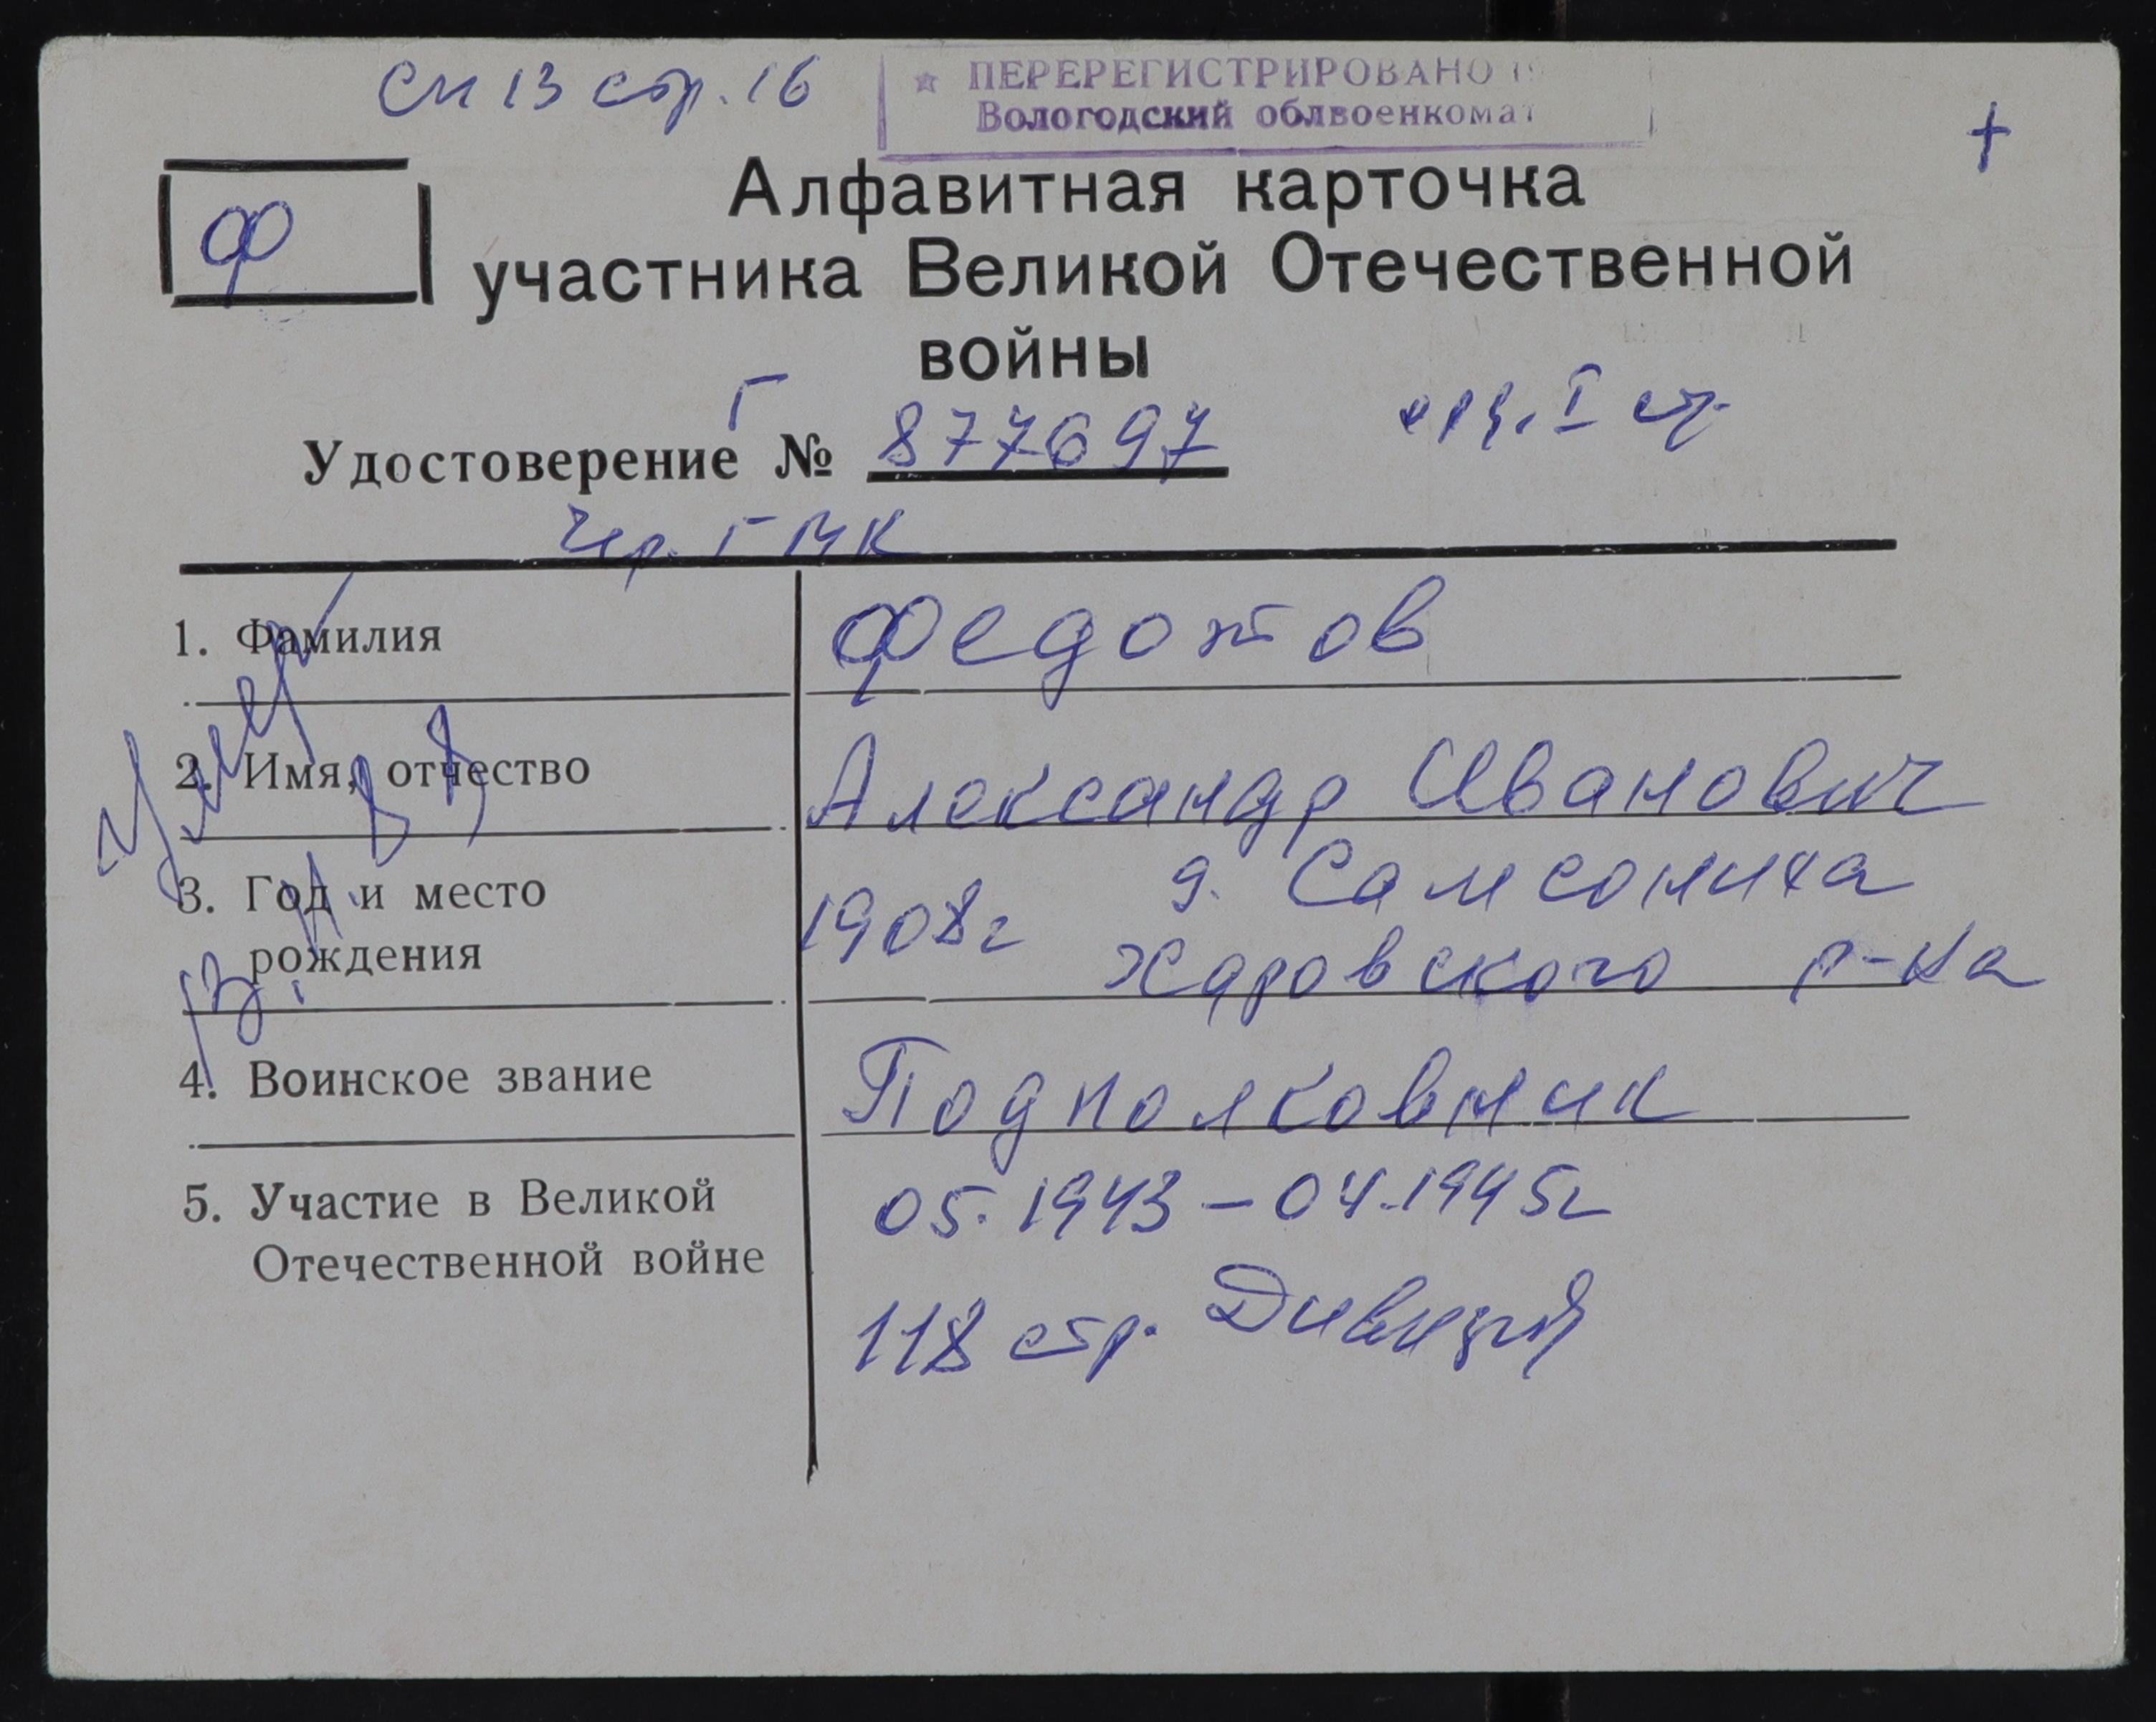 сп 13 стр. 16
ПЕРЕРЕГИСТРИРОВАНО 19
Вологодский облвоенкомат
+
Ф
Алфавитная карточка
участника Великой Отечественной
войны
Удостоверение Г № 877697
орд. I ст.
Чер. ГВК
1. Фамилия
Федотов
2. Имя, отчество
Александр Иванович
3. Год и место
рождения
1908г д. Самсониха
Харовского р-на
4. Воинское звание
Подполковник
5. Участие в Великой
Отечественной войне
05.1943 – 04.1945г
118 стр. Дивизия
Умер